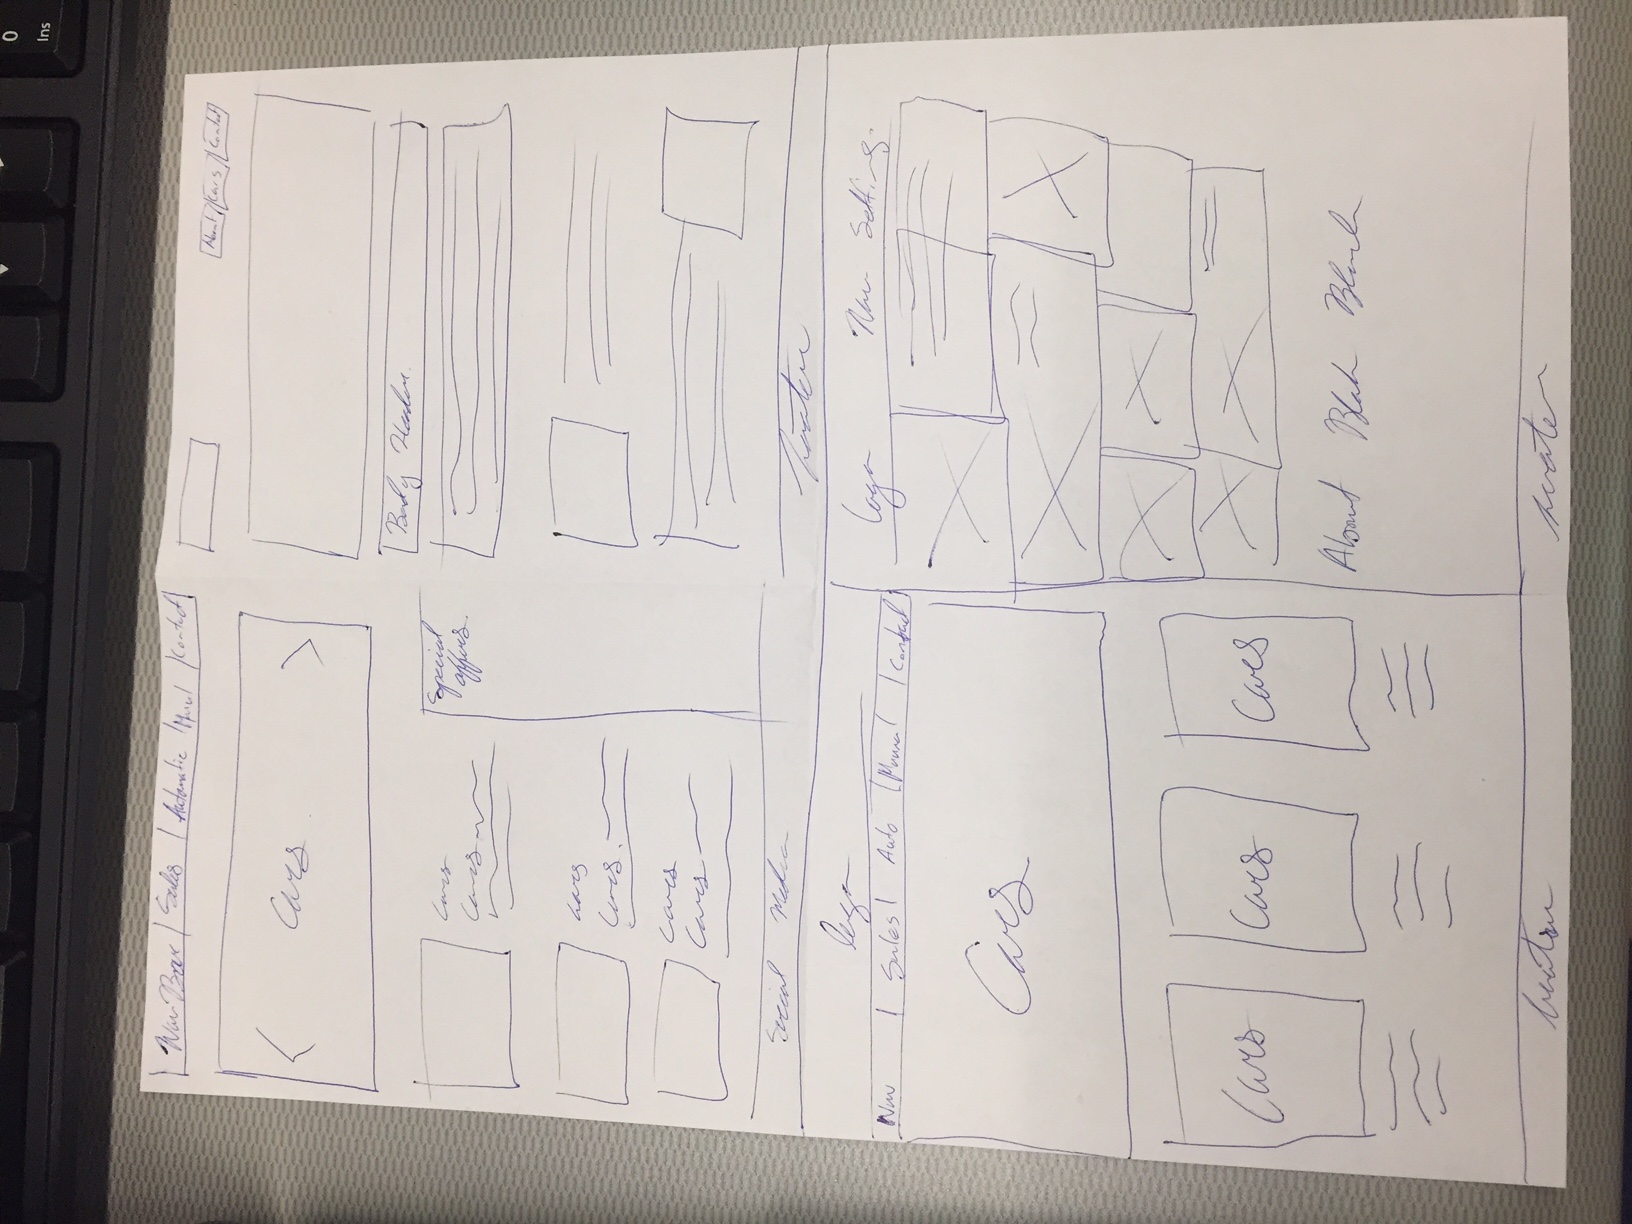 Nav Bar Sales Automatic Manual Contact
< Cars >
Cars
Cars
Special
offers
Cars
Cars
Cars
Cars
Social Media
About Cars Contact
Body Header
Footer
logo
Nav Sales Auto Manual Contact
Cars
Cars Cars Cars
Footer
Logo Nav Settings
About Blah Blah
Footer
0
Ins